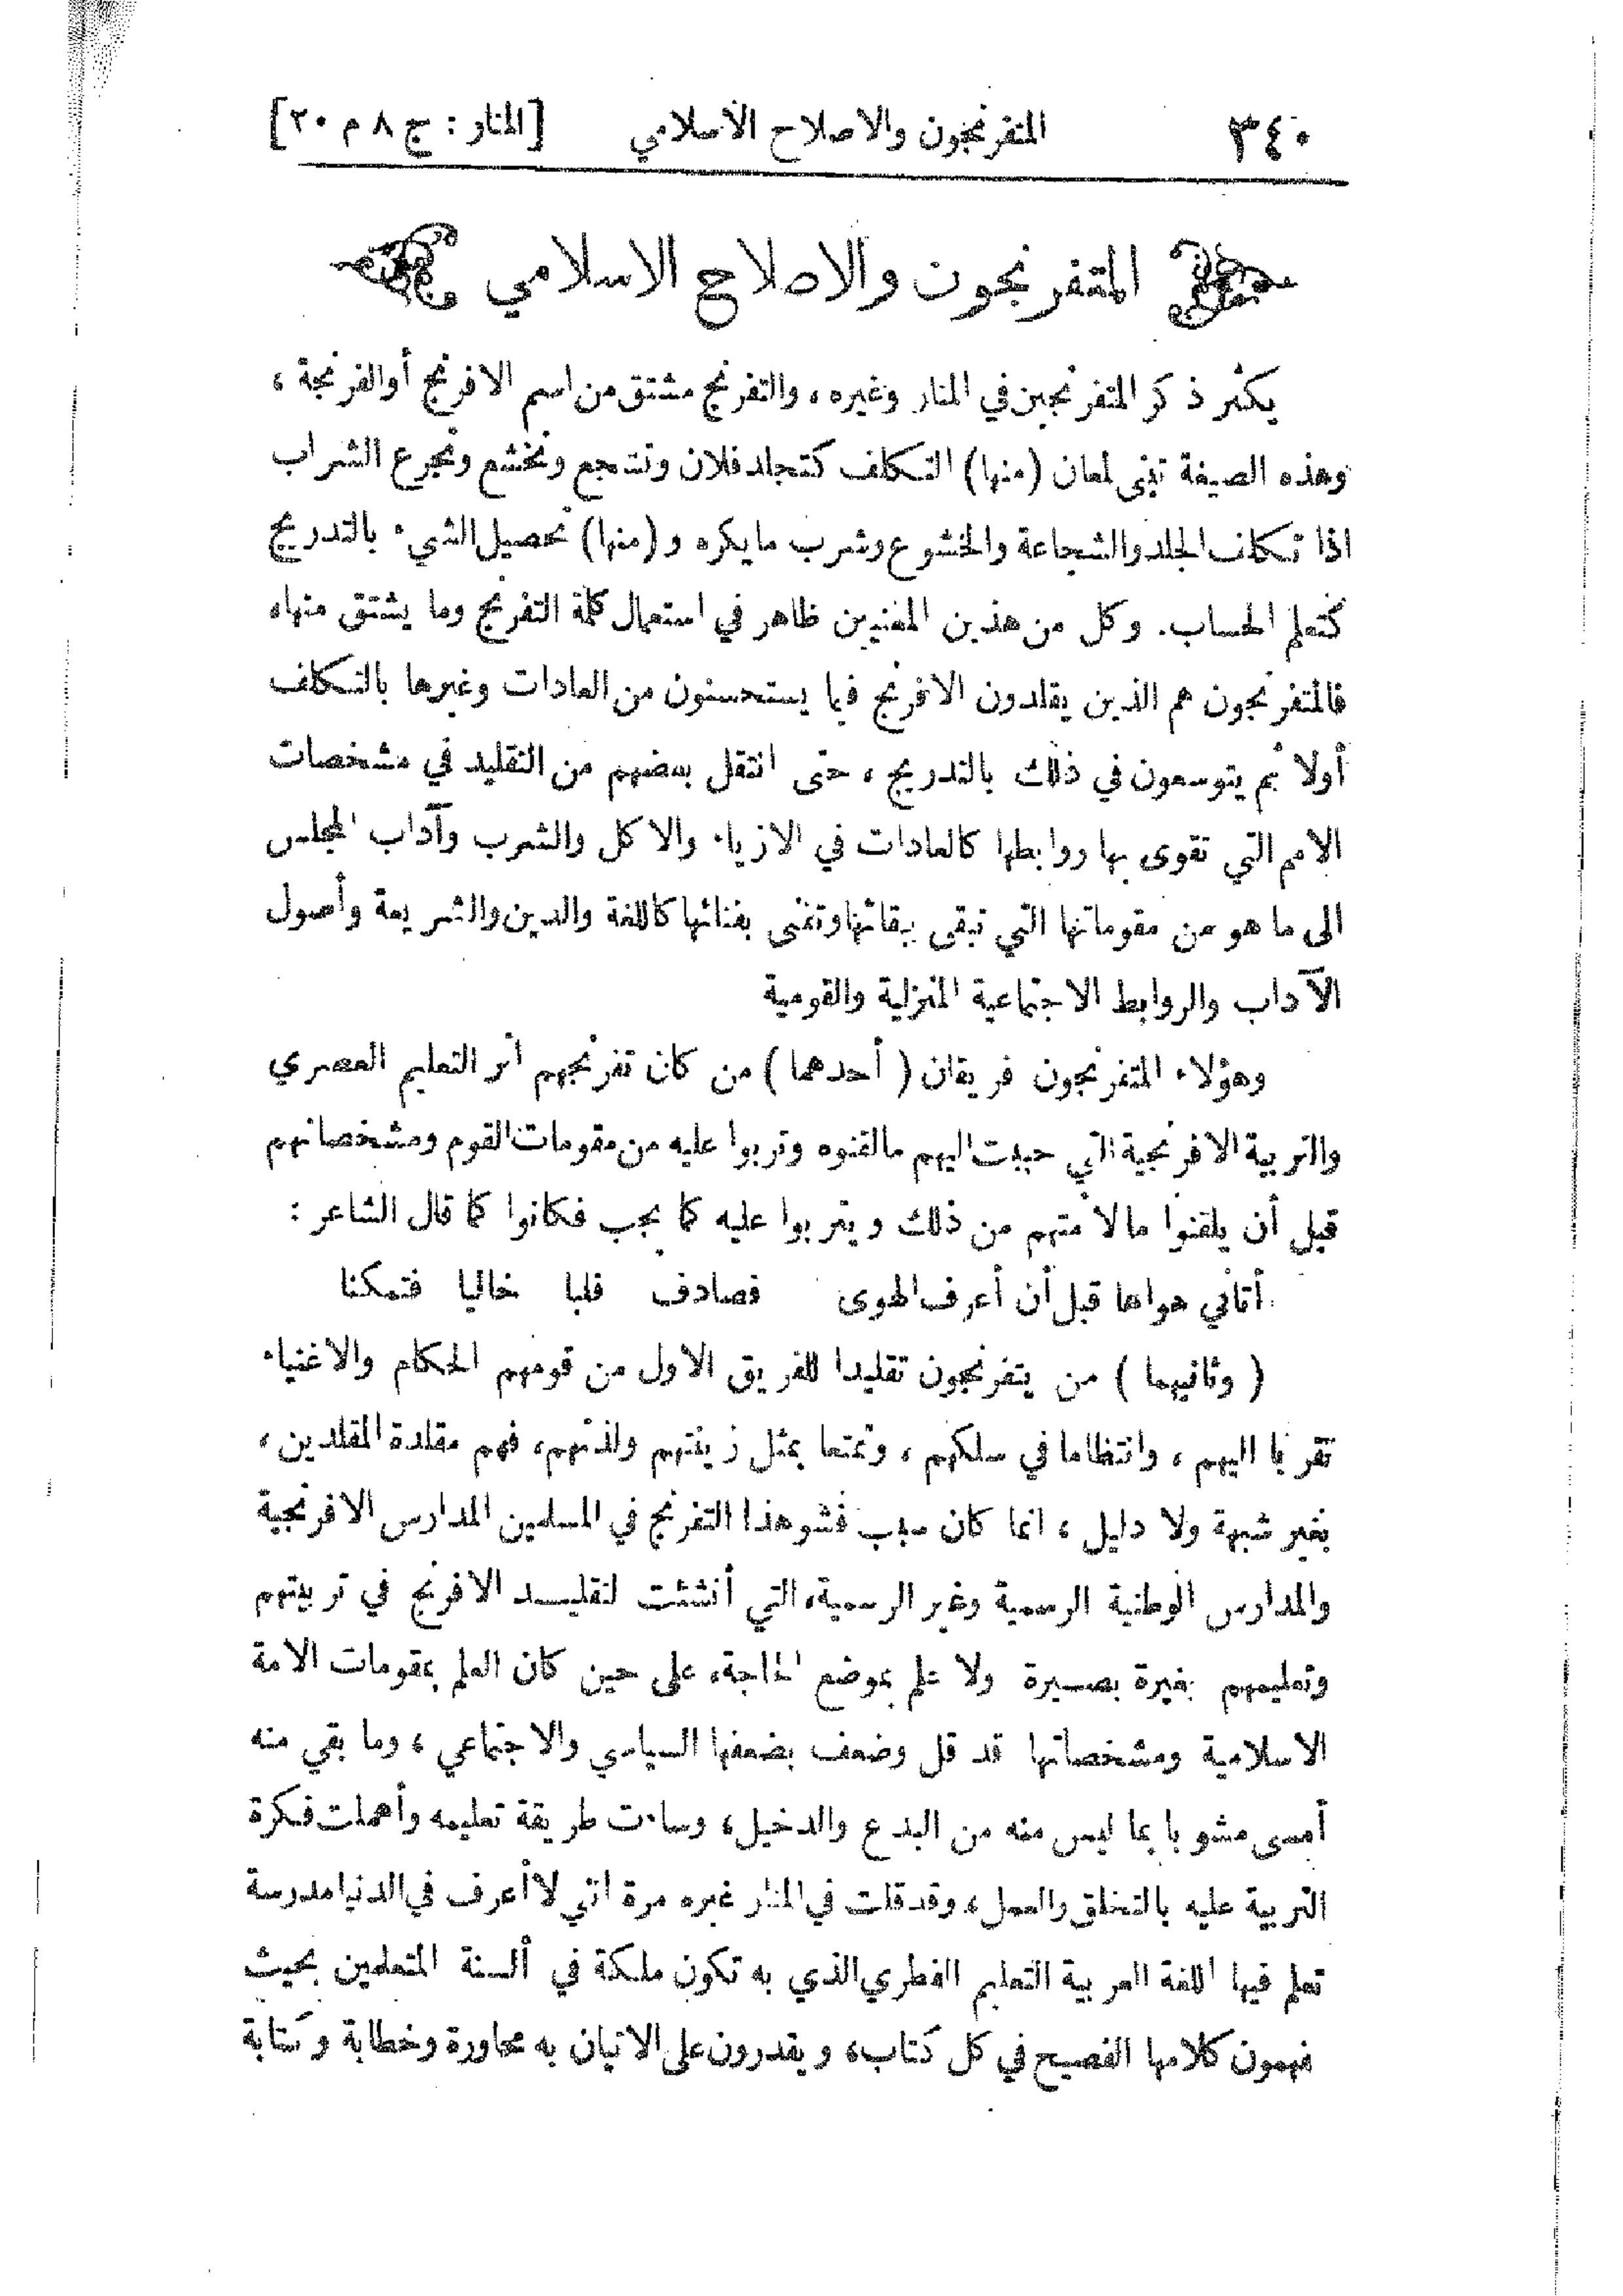 ٣٤٠ المتفرنجون والاصلاح الاسلامي [المنار : ج ٨ م ٢٠]
المتفرنجون والاصلاح الاسلامي
يكثر ذكر المتفرنجين في المنار وغيره ، والتفرنج مشتق من اسم الافرنج أو الفرنجة ،
وهذه الصيغة تبنى لمعان (منها) التكلف كتجلد فلان وتشجع وتخشع وتجرع الشراب
اذا تكلف الجلد والشجاعة والخشوع وشرب ما يكره و (منها) تحصيل الشيء بالتدريج
كتعلم الحساب. وكل من هذين المعنيين ظاهر في استعمال كلمة التفرنج وما يشتق منها،
فالمتفرنجون هم الذين يقلدون الافرنج فيما يستحسنون من العادات وغيرها بالتكلف
أولا ثم يتوسعون في ذلك بالتدريج ، حتى انتقل بعضهم من التقليد في مشخصات
الامم التي تقوى بها روابطها كالعادات في الازياء والاكل والشرب وآداب المجلس
الى ما هو من مقوماتها التي تبقى ببقائها وتفنى بفنائها كاللغة والدين والشريعة وأصول
الآداب والروابط الاجتماعية المنزلية والقومية
وهؤلاء المتفرنجون فريقان ( أحدهما ) من كان تفرنجهم أثر التعليم العصري
والتربية الافرنجية التي حببت اليهم ما لقنوه وتربوا عليه من مقومات القوم ومشخصاتهم
قبل أن يلقنوا ما لأمتهم من ذلك ويتربوا عليه كما يجب فكانوا كما قال الشاعر :
أتاني هواها قبل أن أعرف الهوى فصادف قلبا خاليا فتمكنا
( وثانيهما ) من يتفرنجون تقليدا للفريق الاول من قومهم الحكام والاغنياء
تقربا اليهم ، وانتظاما في سلكهم ، وتمتعا بمثل زينتهم ولذتهم، فهم مقلدة المقلدين ،
بغير شبهة ولا دليل ، انما كان سبب فشو هذا التفرنج في المسلمين المدارس الافرنجية
والمدارس الوطنية الرسمية وغير الرسمية، التي أنشئت لتقليد الافرنج في تربيتهم
وتعليمهم بغيرة بصيرة ولا علم بموضع الحاجة، على حين كان العلم بمقومات الامة
الاسلامية ومشخصاتها قد قل وضعف بضعفها السياسي والاجتماعي ، وما بقي منه
أمسى مشوبا بما ليس منه من البدع والدخيل، وساءت طريقة تعليمه وأهملت فكرة
التربية عليه بالتخلق والعمل، وقد قلت في المنار غيره مرة انني لا أعرف في الدنيا مدرسة
تعلم فيها اللغة العربية التعليم الفطري الذي به تكون ملكة في ألسنة المتعلمين بحيث
فهمون كلامها الفصيح في كل كتاب، ويقدرون على الاتيان به محاورة وخطابة وكتابة